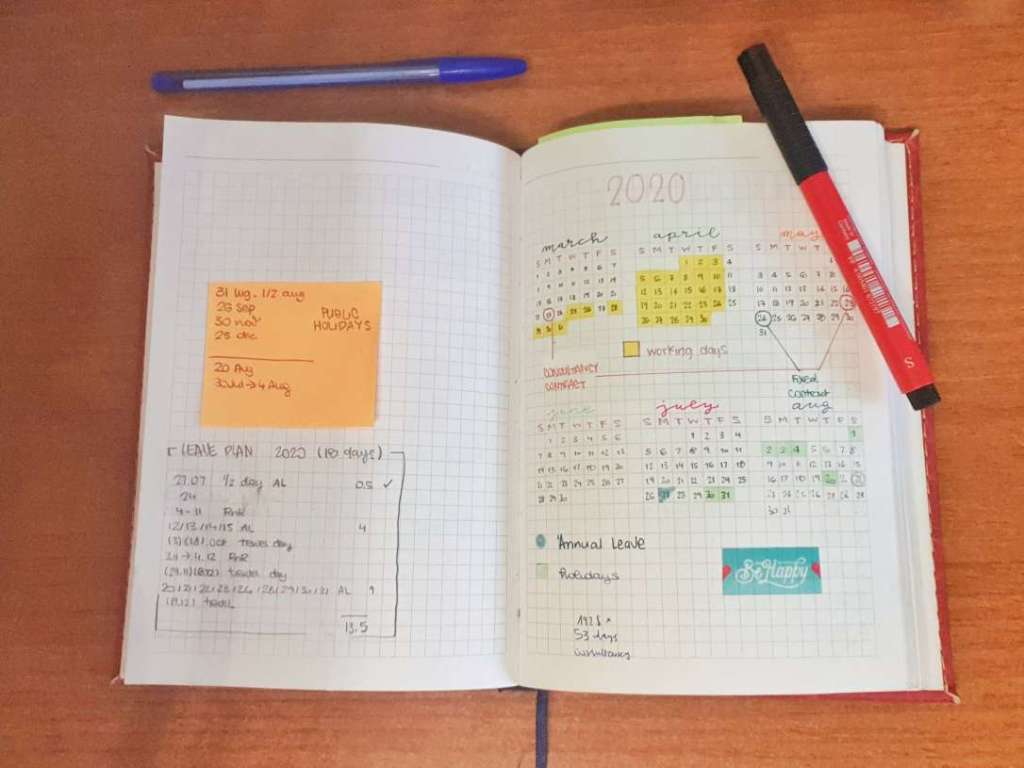 31 lug - 1/2 aug
26 sep
30 nov
25 dec
PUBLIC
HOLIDAYS
20 Aug
30 Jul → 4 Aug
LEAVE PLAN 2020 (18 days)
27.07 1/2 day AL 0.5 ✓
24
4 - 11 RnR
12/13/14/15 AL 4
travel day
24 → 4.12 RnR
travel day
AL 9
travel
13.5
2020
march
S M T W T F S
1 2 3 4 5 6 7
8 9 10 11 12 13 14
15 16 17 18 19 20 21
22 23 24 25 26 27 28
29 30 31
april
S M T W T F S
1 2 3 4
5 6 7 8 9 10 11
12 13 14 15 16 17 18
19 20 21 22 23 24 25
26 27 28 29 30
may
S M T W T
3 4 5 6 7 8
10 11 12 13 14 15 16
17 18 19 20 21 22 23
24 25 26 27 28 29 30
31
working days
CONSULTANCY
CONTRACT
Fixed
Contract
june
S M T W T F S
1 2 3 4 5 6
7 8 9 10 11 12 13
14 15 16 17 18 19 20
21 22 23 24 25 26 27
28 29 30
july
S M T W T F S
1 2 3 4
5 6 7 8 9 10 11
12 13 14 15 16 17 18
19 20 21 22 23 24 25
26 27 28 29 30 31
aug
S M T W T F S
1
2 3 4 5 6 7 8
9 10 11 12 13 14 15
16 17 18 19 20 21
30 31
Annual Leave
holidays
Be Happy
53 days
S